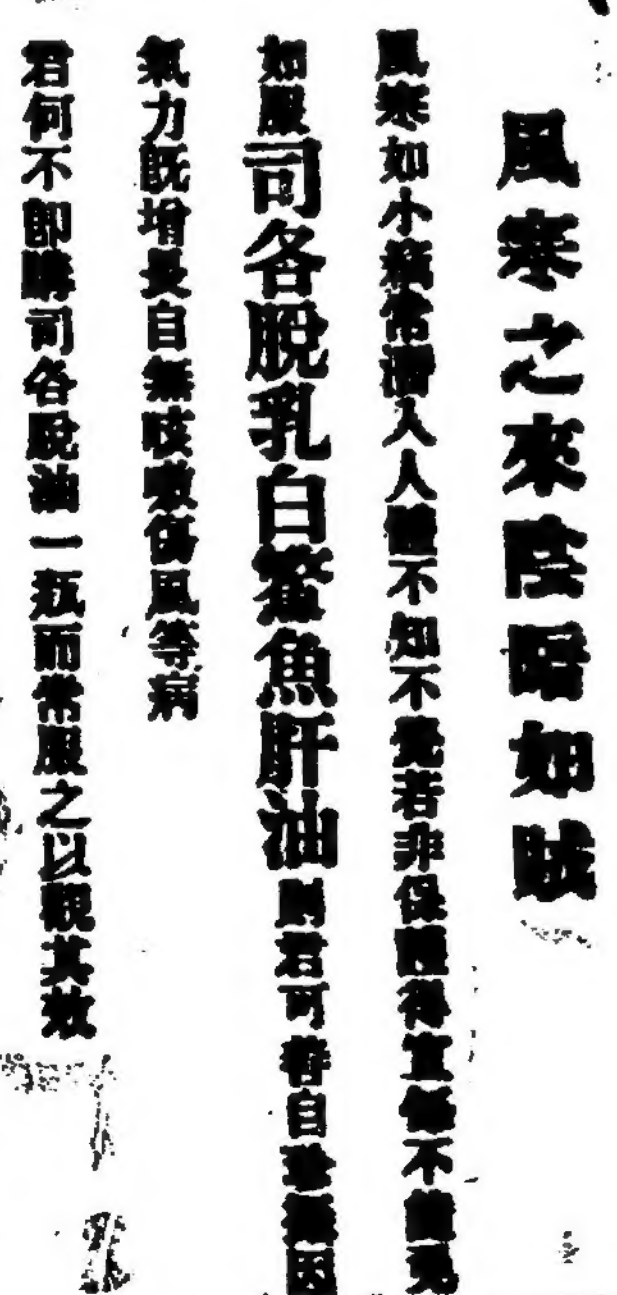 風寒之來陰暗如賊
風寒如小竊常潛入人體不知不覺若非保護得宜極不能免
如服司各脫乳白鰵魚肝油則君可善自珍攝因
氣力旣增長自無咳嗽傷風等病
君何不卽購司各脫油一瓶而常服之以觀其效